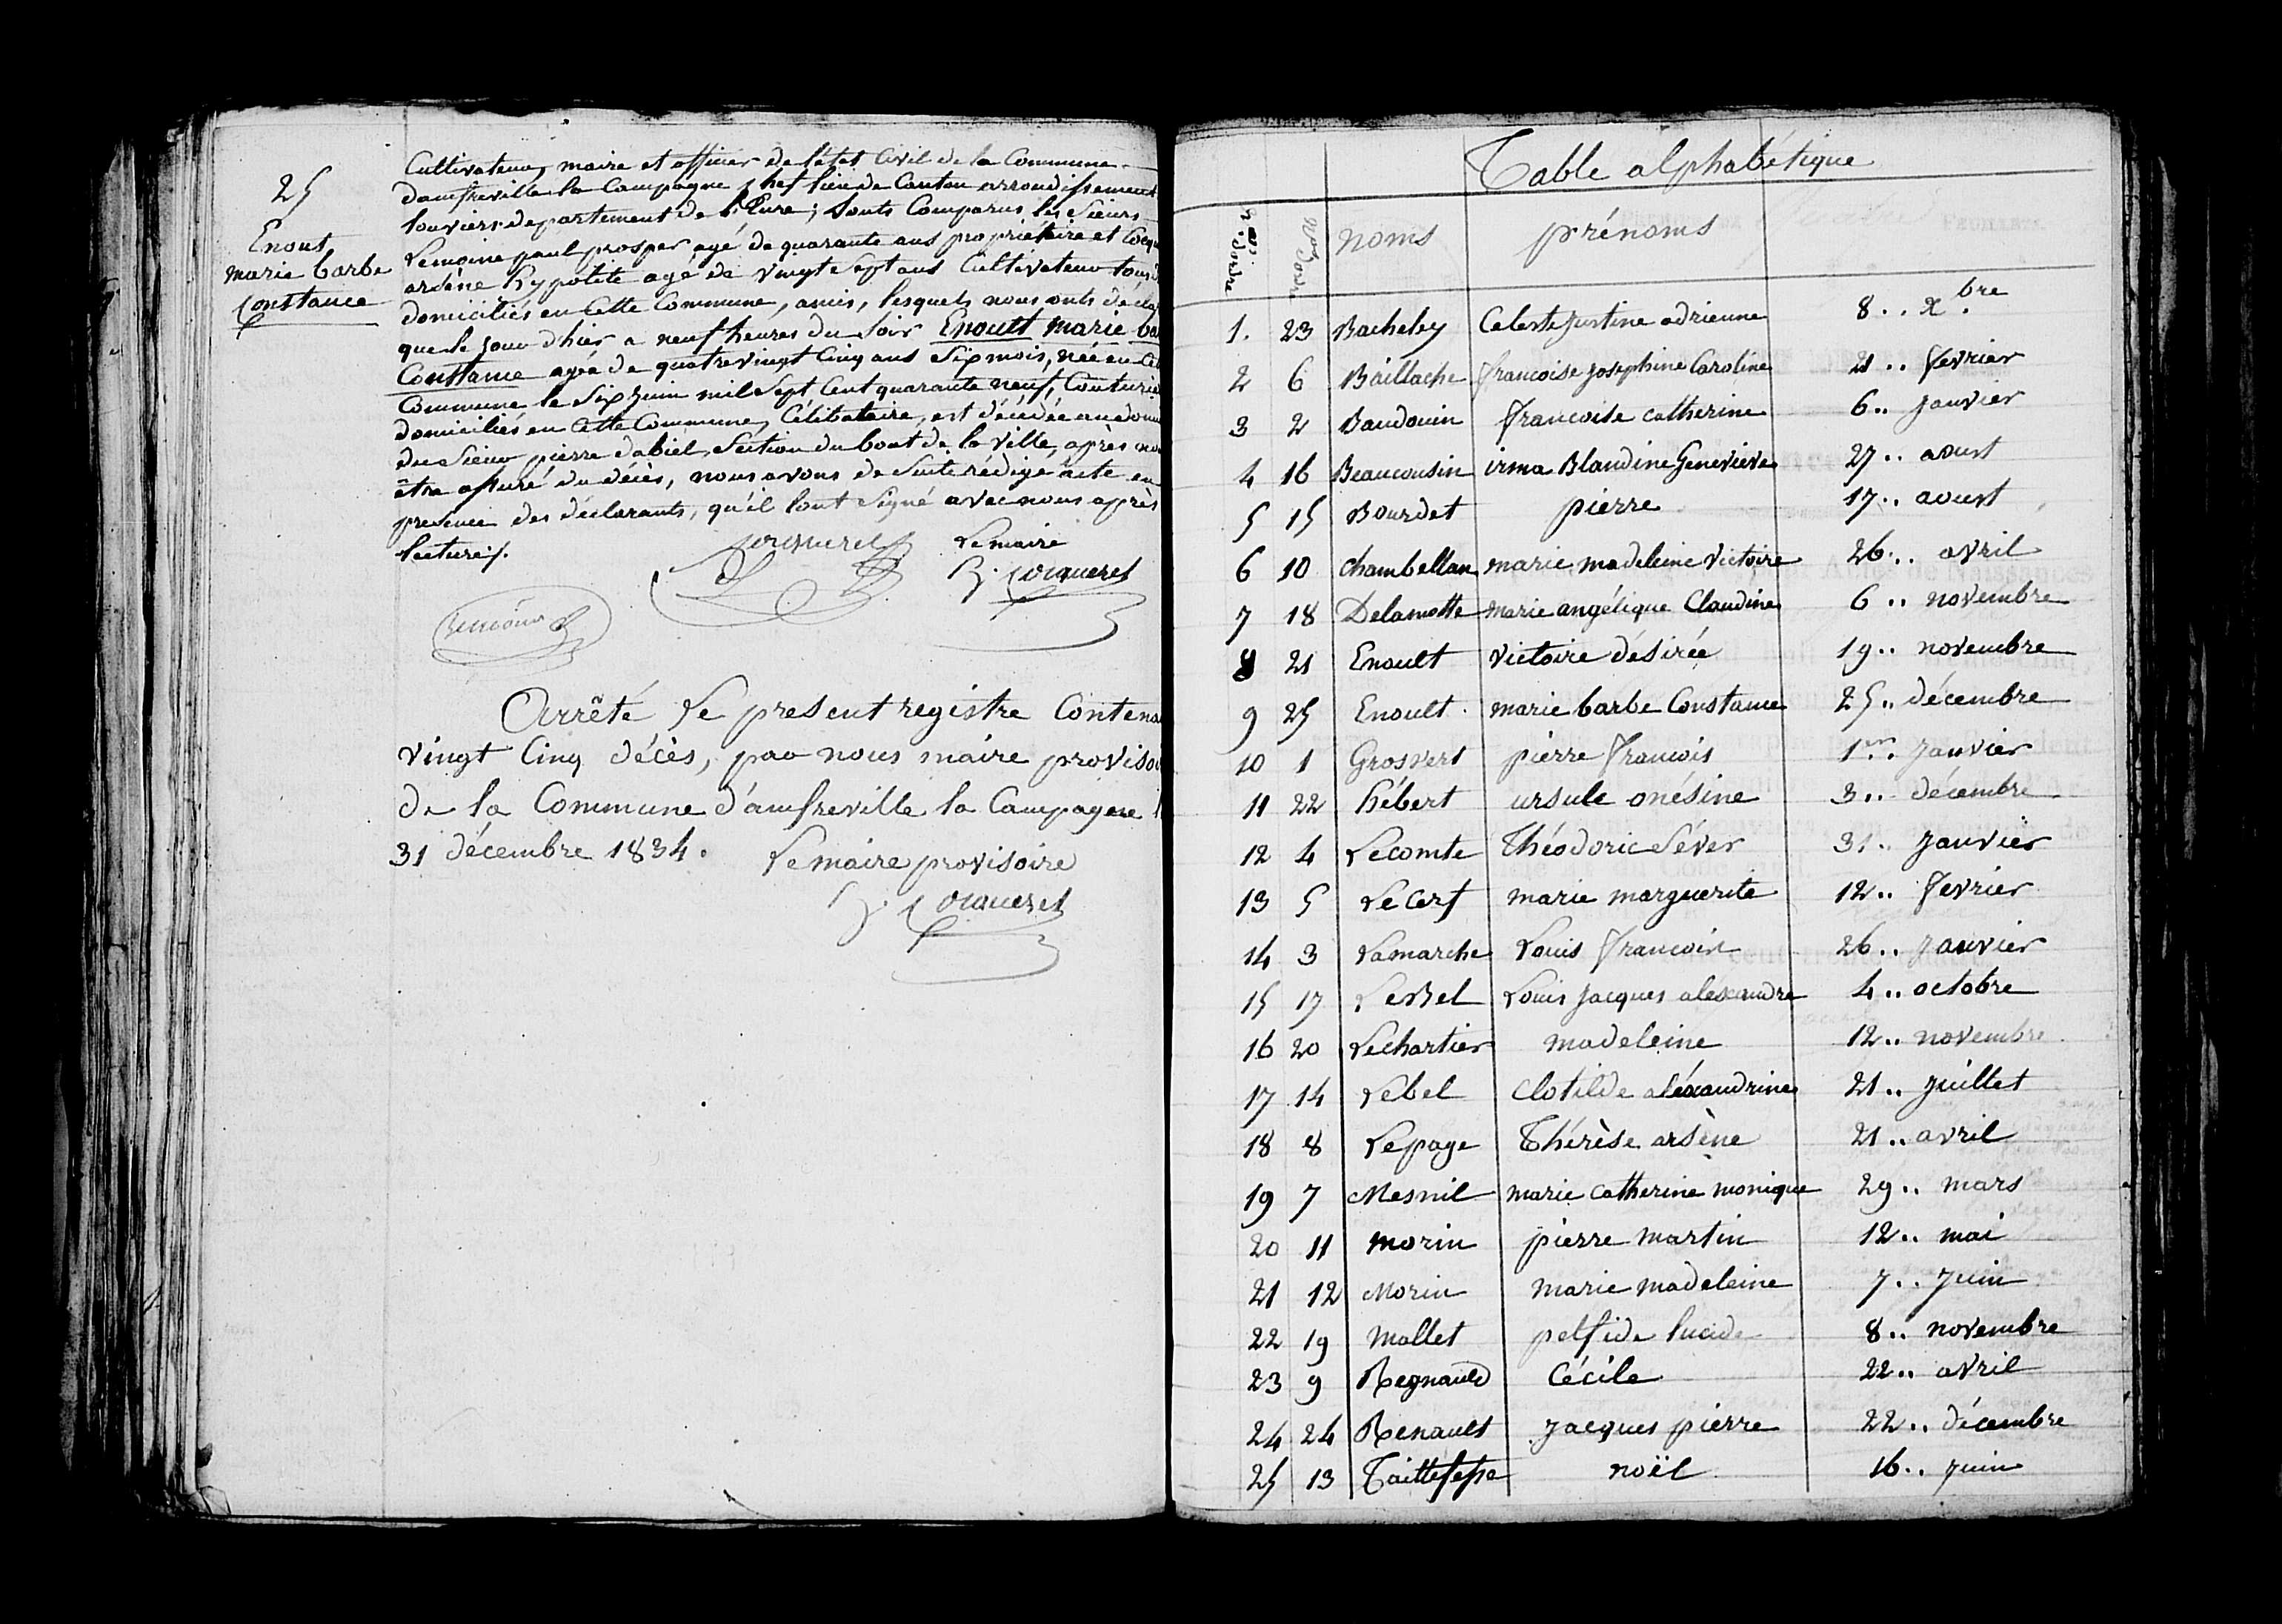 25
Enout
marie barbe
Constance
Cultivateur, maire et officier de l'état Civil de la Commune
damfreville la Campagne chef lieu de Canton arrondissement
louviers departement de l'Eure; sonts Comparus les Sieurs
Lemoine paul prosper agé de quarante ans propriétaire et
arsène hypolite agé de vingt sept ans Cultivateur tous
domiciliés en Cette Commune, amis, lesquels nous onts
que le jour d'hier a neuf heures du soir Enoult marie
Constance agée de quatre vingt Cinq ans Six mois, née en
Commune le Six juin mil Sept Cent quarante neuf,
domiciliés en Cette Commune, Célibataire, est décédée
du Sieur pierre dabiel, Section du bout de la ville, après
être assuré du décès, nous avons de Suite rédigé acte en
presence des déclarants, qu'il sont Signé avec nous après
lecture;.
Le maire
Arrêté Le present registre
vingt Cinq décès, par nous maire
de la Commune d'amfreville la Campagne
31 décembre 1834. Le maire provisoire
Table alphabétique
noms prénoms
1. 23 Bacheley Celeste justine adrienne 8.. xbre
2 6 Baillache francoise josephine Caroline 21.. fevrier
3 2 Baudouin francoise catherine 6.. janvier
4 16 Beaucousin irma Blandine Genevieve 27.. aoust
5 15 Bourdet pierre 17.. aoust
6 10 chambellan marie madeleine victoire 26.. avril
7 18 Delamotte marie angélique Claudine 6.. novembre
8 21 Enoult victoire désirée 19.. novembre
9 25 Enoult marie barbe Constance 25.. décembre
10 1 Grosvert pierre francois 1er.. janvier
11 22 hébert ursule onésine 3.. décembre
12 4 Lecomte Théodoric Séver 31. janvier
13 5 Le Cerf marie marguerite 12.. fevrier
14 3 Lamarche Louis francois 26.. janvier
15 17 LeBel Louis jacques alexandre 4.. octobre
16 20 Lechartier madeleine 12.. novembre
17 14 Lebel Clotilde aléxandrine 21.. juillet
18 8 Lepage Thérèse arsène 21.. avril
19 7 Mesnil marie catherine monique 29.. mars
20 11 morin pierre martin 12.. mai
21 12 Morin marie madeleine 7.. juin
22 19 Mallet pelfide lucide 8.. novembre
23 9 Regnauld Cécile 22.. avril
24 24 Renault jacques pierre 22.. décembre
25 13 Taillefesse noël 16.. juin